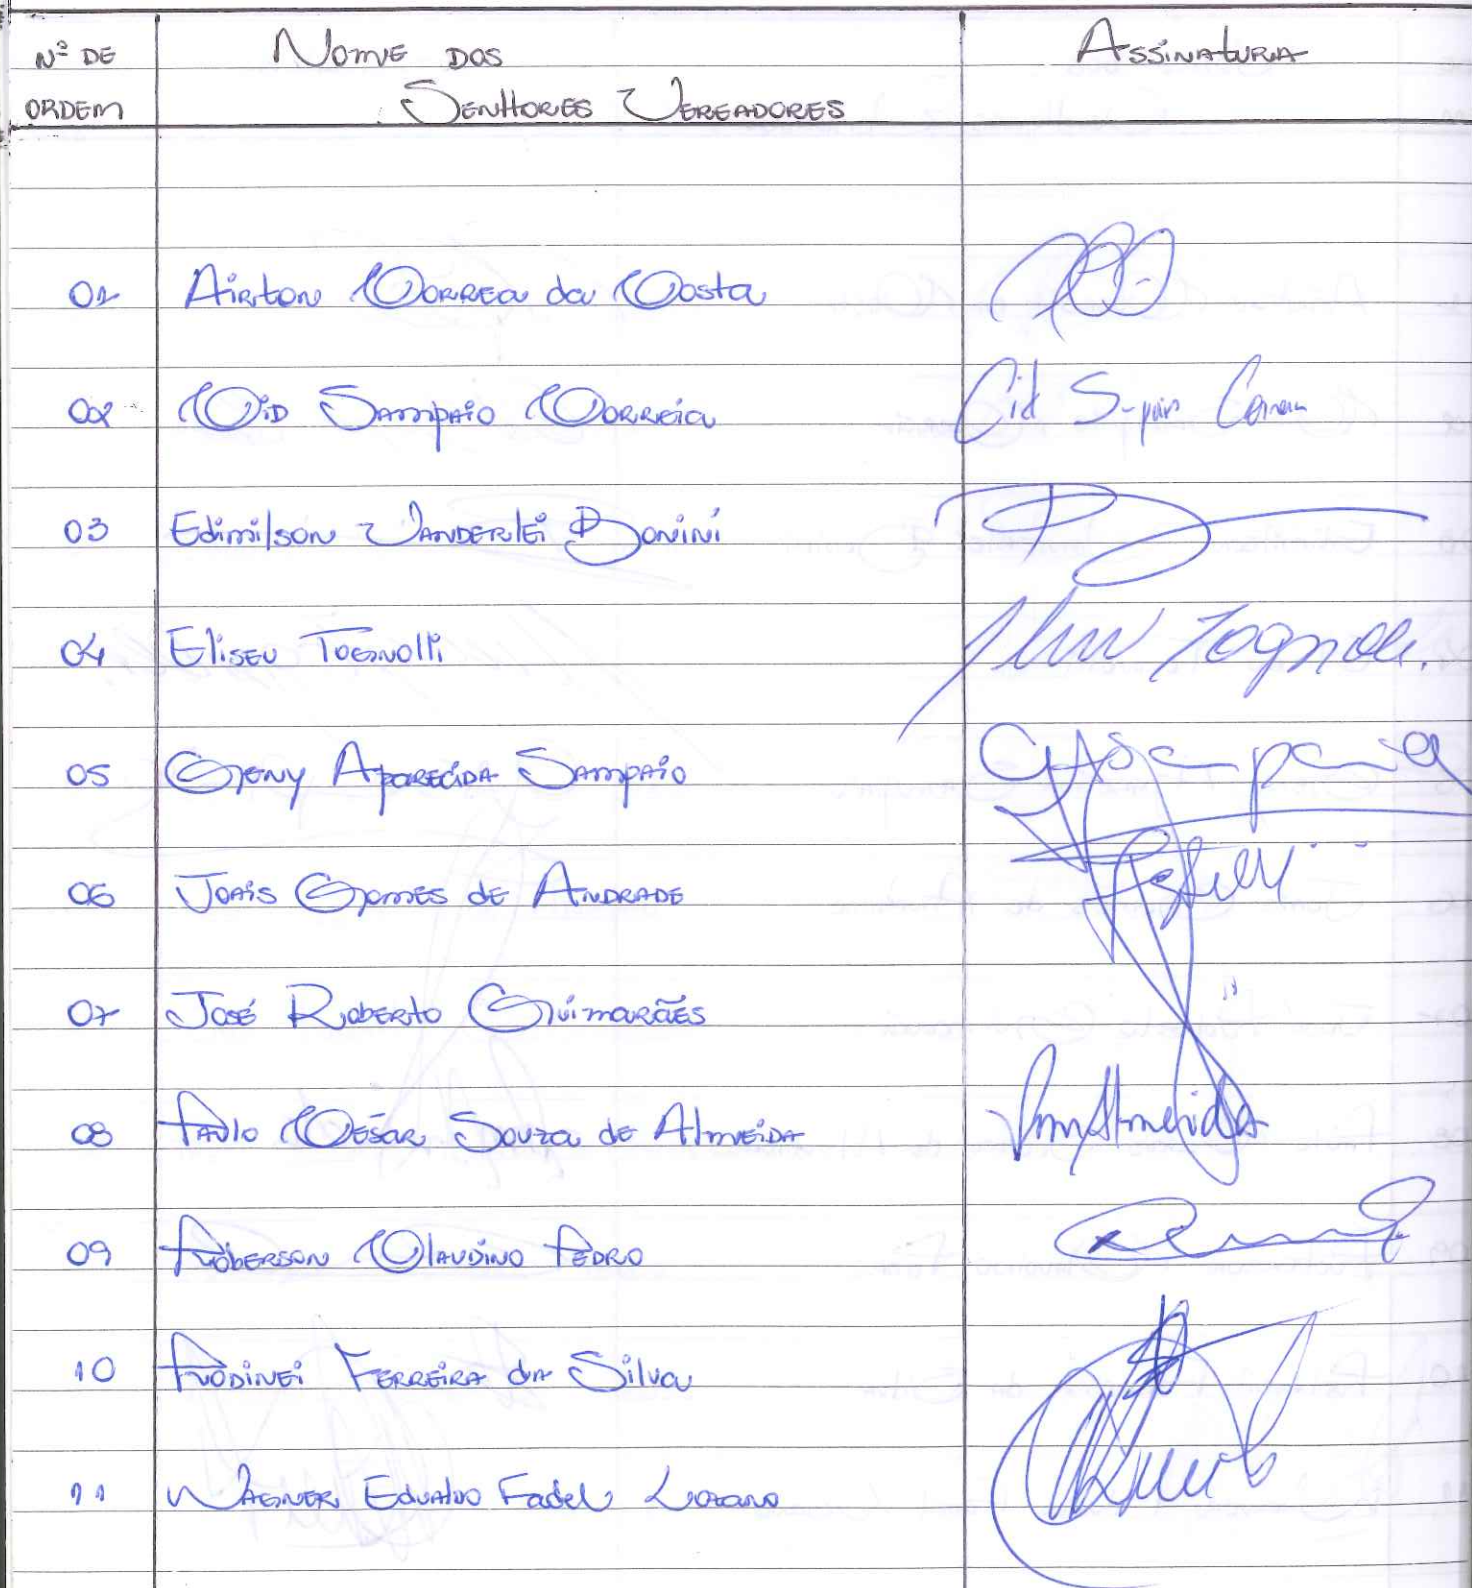 Nº DE Nome dos Assinatura
ORDEM Senhores Vereadores
01 Airton Correa da Costa
02 Cid Sampaio Correia Cid Correia
03 Edimilson Vanderlei Bonini
04 Eliseu Tognolli Tognolli
05 Geny Aparecida Sampaio GASampaio
06 Joaìs Gomes de Andrade
07 José Roberto Guimarães
08 Paulo César Souza de Almeida Almeida
09 Róberson Claudino Pedro
10 Rodinei Ferreira da Silva
11 Wagner Eduardo Fadel Lozano